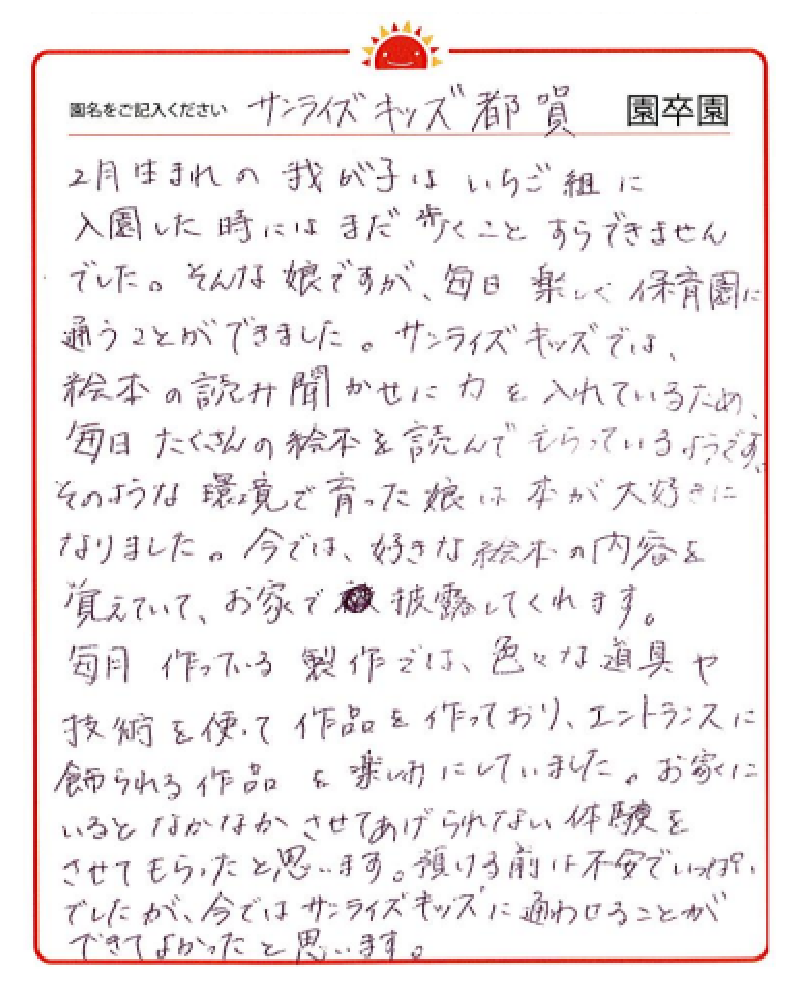 園名をご記入ください サンライズキッズ都賀 園卒園
2月生まれの 我が子は いちご組に
入園した 時には まだ 歩くこと すらできません
でした。そんな 娘ですが、毎日 楽しく 保育園に
通うことができました。サンライズキッズでは、
絵本の読み聞かせに力を入れているため、
毎日 たくさんの絵本を読んでもらっているようです。
そのような 環境で育った娘は 本が大好きに
なりました。今では、好きな絵本の内容を
覚えていて、お家で 披露してくれます。
毎月 作っている 製作では、色々な道具や
技術を使って 作品を作っており、エントランスに
飾られる作品を楽しみにしていました。お家に
いるとなかなか させてあげられない体験を
させてもらったと思います。預ける前は不安でいっぱい
でしたが、今ではサンライズキッズに通わせることが
できてよかったと思います。